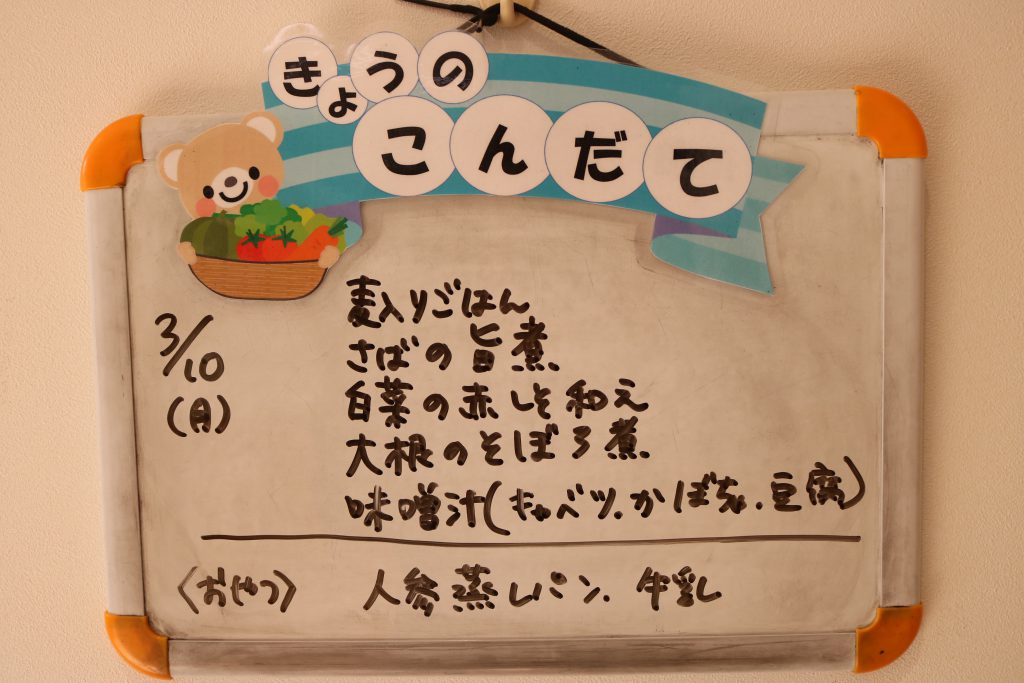 きょうの
こんだて
3/10
(月)
麦入りごはん
さばの旨煮
白菜の赤しそ和え
大根のそぼろ煮
味噌汁(キャベツ、かぼちゃ、豆腐)
〈おやつ〉 人参蒸しパン、牛乳